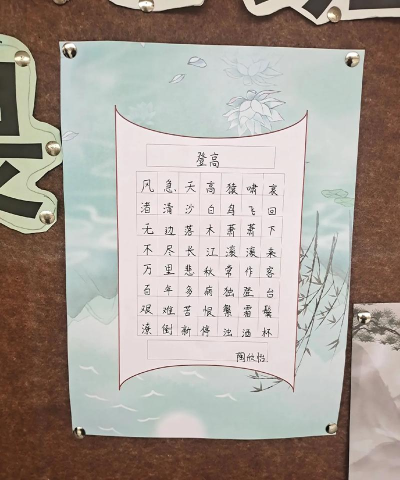 登高
风急天高猿啸哀
渚清沙白鸟飞回
无边落木萧萧下
不尽长江滚滚来
万里悲秋常作客
百年多病独登台
艰难苦恨繁霜鬓
潦倒新停浊酒杯